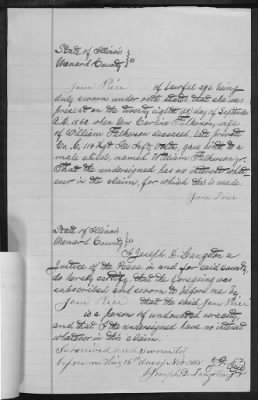 State of Illinois
Menard County } ss
Jane Rice of lawful age being
duly sworn under oath states that she was
present on the twenty eighth day of September
A.D. 1862 when Mrs Caroline Fulkerson, wife
of William Fulkerson deceased, late private
Co. C, 114 Regt Ills Inft Vols, gave birth to a
male child, named William Fulkerson Jr.
That the undersigned has no interest what
ever in the claim, for which this is made.
Jane Rice
State of Illinois
Menard County } ss
I Joseph D. Langston a
Justice of the Peace in and for said county
do hereby certify, that the foregoing was
subscribed and sworn to before me by
Jane Rice that the said Jane Rice
is a person of undoubted veracity
and that I the undersigned have no interest
whatever in this claim.
Subscribed and sworn to
before me this 16 day of Nov
Joseph D. Langston